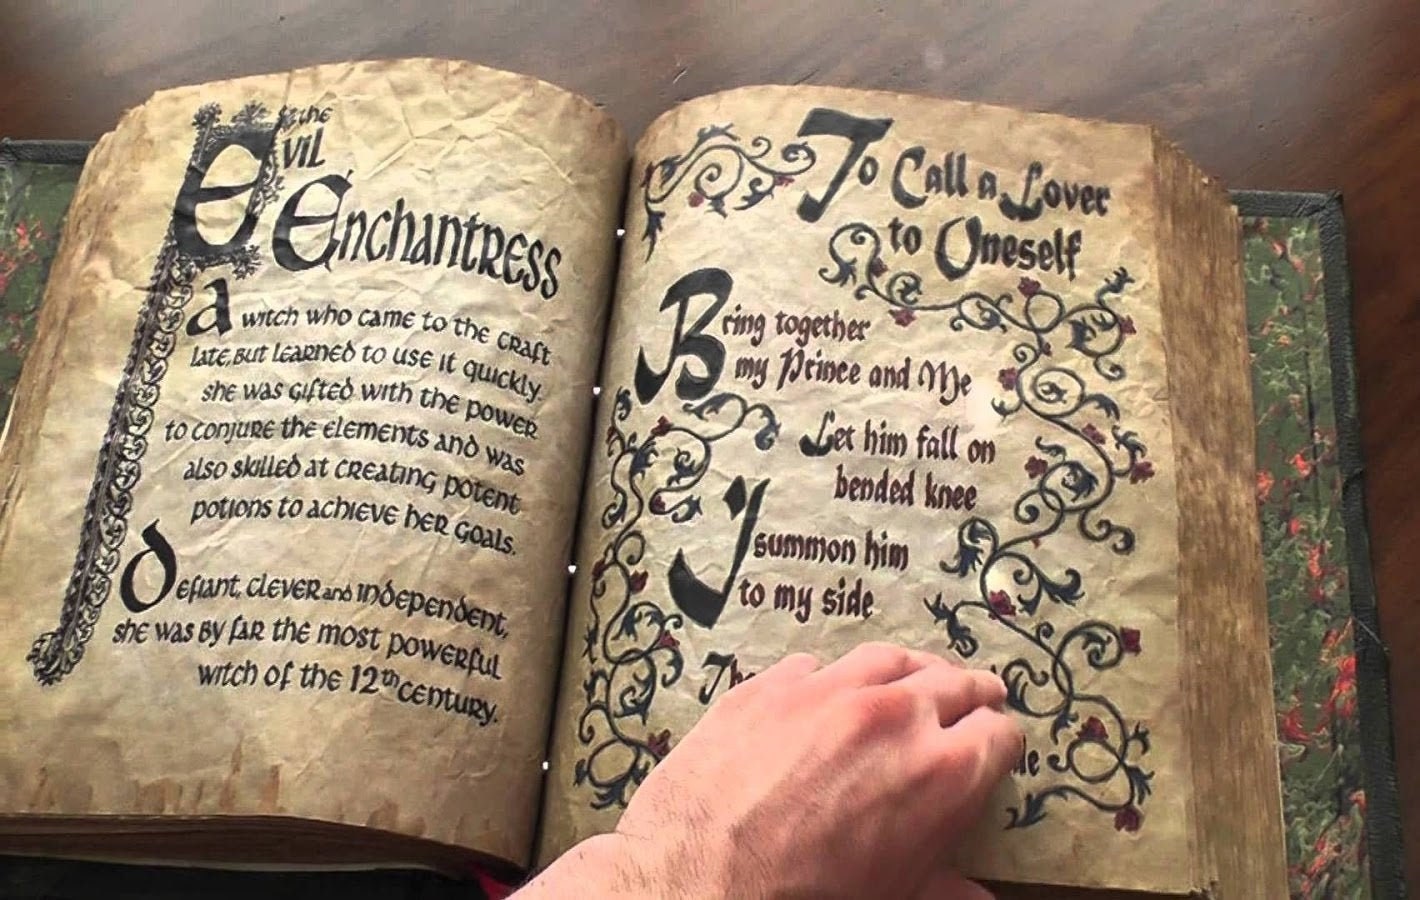 the
Evil
Enchantress
a witch who came to the craft
late, but learned to use it quickly.
she was gifted with the power
to conjure the elements and was
also skilled at creating potent
potions to achieve her goals.
defiant, clever and independent,
she was by far the most powerful
witch of the 12th century.
To Call a Lover
to Oneself
Bring together
my Prince and Me
Let him fall on
bended knee
I summon him
to my side